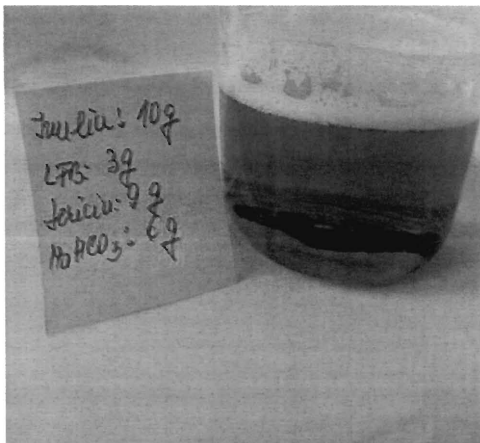 Inulin: 10g
LFB: 3g
Sericin: 9g
NaHCO3: 6g